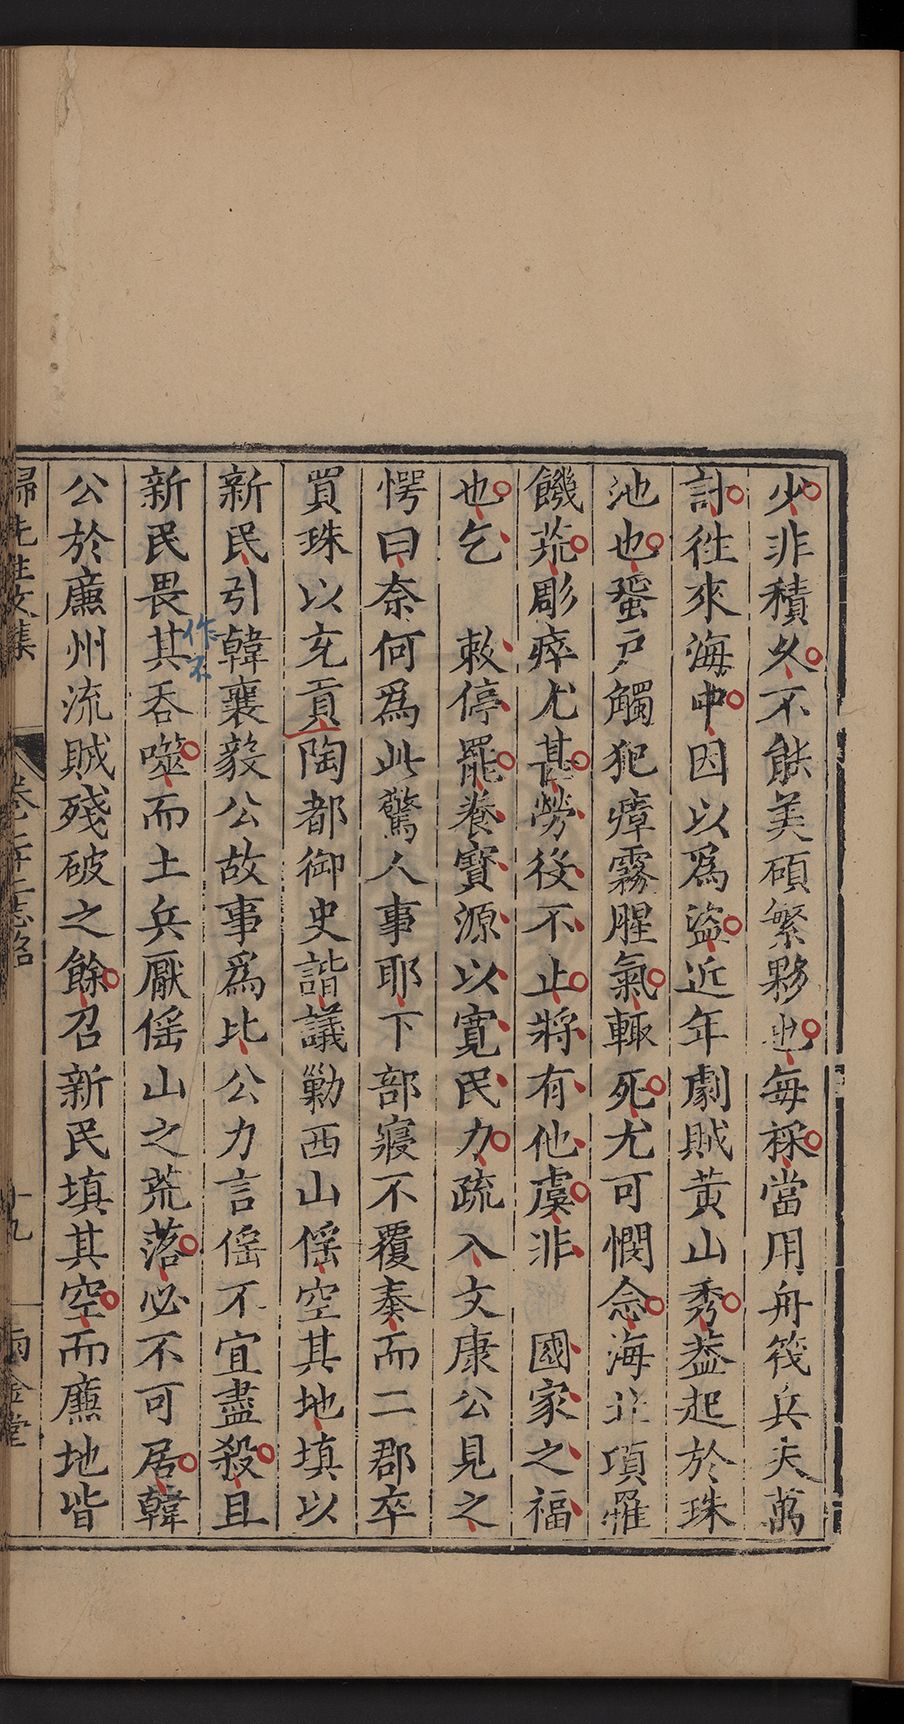 少非積久不能美碩繁夥也每採當用舟筏兵夫萬
計往來海中因以為盜近年劇賊黃山秀益起於珠
池也蜑戶觸犯瘴霧腥氣輒死尤可憫念海北項罹
饑荒彫瘁尤甚勞役不止將有他虞非　國家之福
也乞　敕停罷養寶源以寬民力疏入文康公見之
愕曰奈何爲此驚人事耶下部寢不覆奏而二郡卒
買珠以充貢陶都御史諧議勦西山傜空其地填以
新民引韓襄毅公故事爲比公力言傜不宜盡殺且
新民畏其吞噬而土兵厭傜山之荒落必不可居韓
作不
公於廉州流賊殘破之餘召新民填其空而廉地皆
歸先生文集　卷二十三志銘　十九　雨金堂